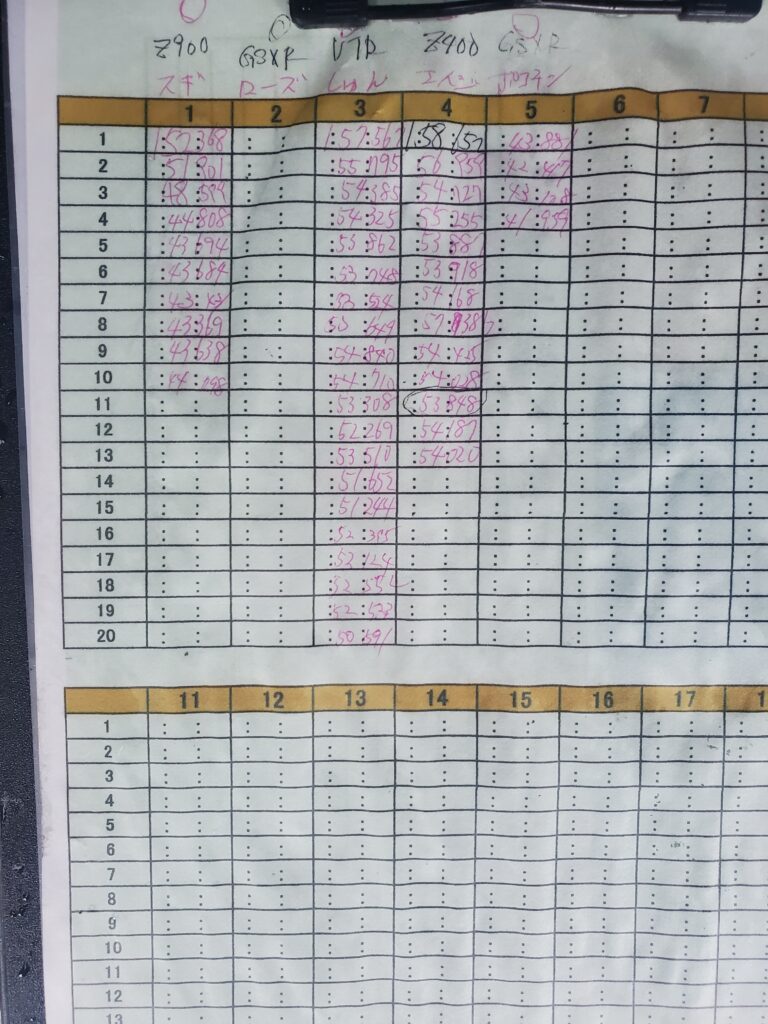 Z900 GSXR VTR Z400 GSXR
スギ ローズ しゅん
1 2 3 4 5 6 7
1 1:57:368 : : 1:57:567 1:58:157 : : : : : :
2 :51:901 : : :55:795 :56:959 : : : : : :
3 :48:599 : : :54:385 :54:127 : : : : : :
4 :44:808 : : :54:325 :55:255 :41:959 : : : :
5 :43:594 : : :53:862 :53:881 : : : : : :
6 :43:684 : : :53:748 :53:918 : : : : : :
7 : : : : : : :54:168 : : : : : :
8 :43:369 : : : : : : : : : : : :
9 :43:538 : : :54:840 :54:425 : : : : : :
10 :44:298 : : :54:710 :54:028 : : : : : :
11 : : : : :53:308 :53:848 : : : : : :
12 : : : : :52:269 :54:187 : : : : : :
13 : : : : :53:510 :54:020 : : : : : :
14 : : : : :51:652 : : : : : : : :
15 : : : : :51:244 : : : : : : : :
16 : : : : : : : : : : : : : :
17 : : : : :52:124 : : : : : : : :
18 : : : : : : : : : : : : : :
19 : : : : :52:533 : : : : : : : :
20 : : : : :50:591 : : : : : : : :
11 12 13 14 15 16 17 1
1 : : : : : : : : : : : : : :
2 : : : : : : : : : : : : : :
3 : : : : : : : : : : : : : :
4 : : : : : : : : : : : : : :
5 : : : : : : : : : : : : : :
6 : : : : : : : : : : : : : :
7 : : : : : : : : : : : : : :
8 : : : : : : : : : : : : : :
9 : : : : : : : : : : : : : :
10 : : : : : : : : : : : : : :
11 : : : : : : : : : : : : : :
12 : : : : : : : : : : : : : :
13 : : : : : : : : : : : : : :